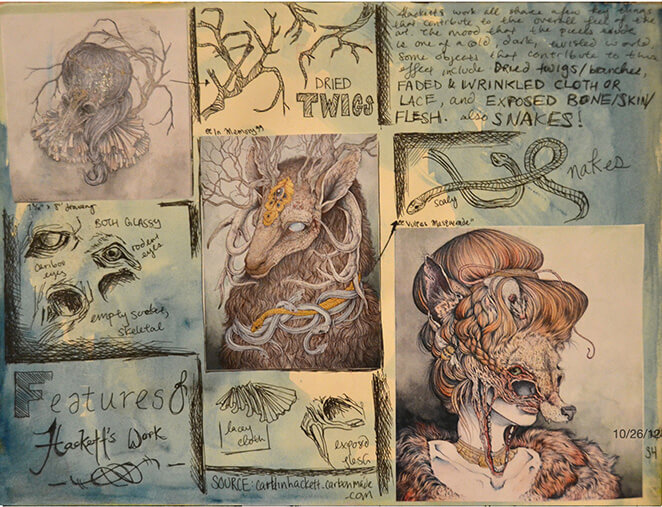 Hackett's work all share a few key things
that contribute to the overall feel of the
art. The mood that the pieces
is one of a old, dark, twisted world.
Some objects that contribute to this
effect include DRIED twigs/branches,
FADED & WRINKLED CLOTH OR
LACE, and EXPOSED BONE/SKIN/
FLESH. also SNAKES!
DRIED
TWIGS
"In Memory"
Snakes
scaly
"Vulpes Masquerade"
drawing
BOTH GLASSY
caribou
eyes
rodent
eyes
empty socket,
skeletal
Features of
Hackett's Work
lacey
cloth
exposed
flesh
SOURCE: caitlinhackett.carbonmade
.com
10/26/12
SH